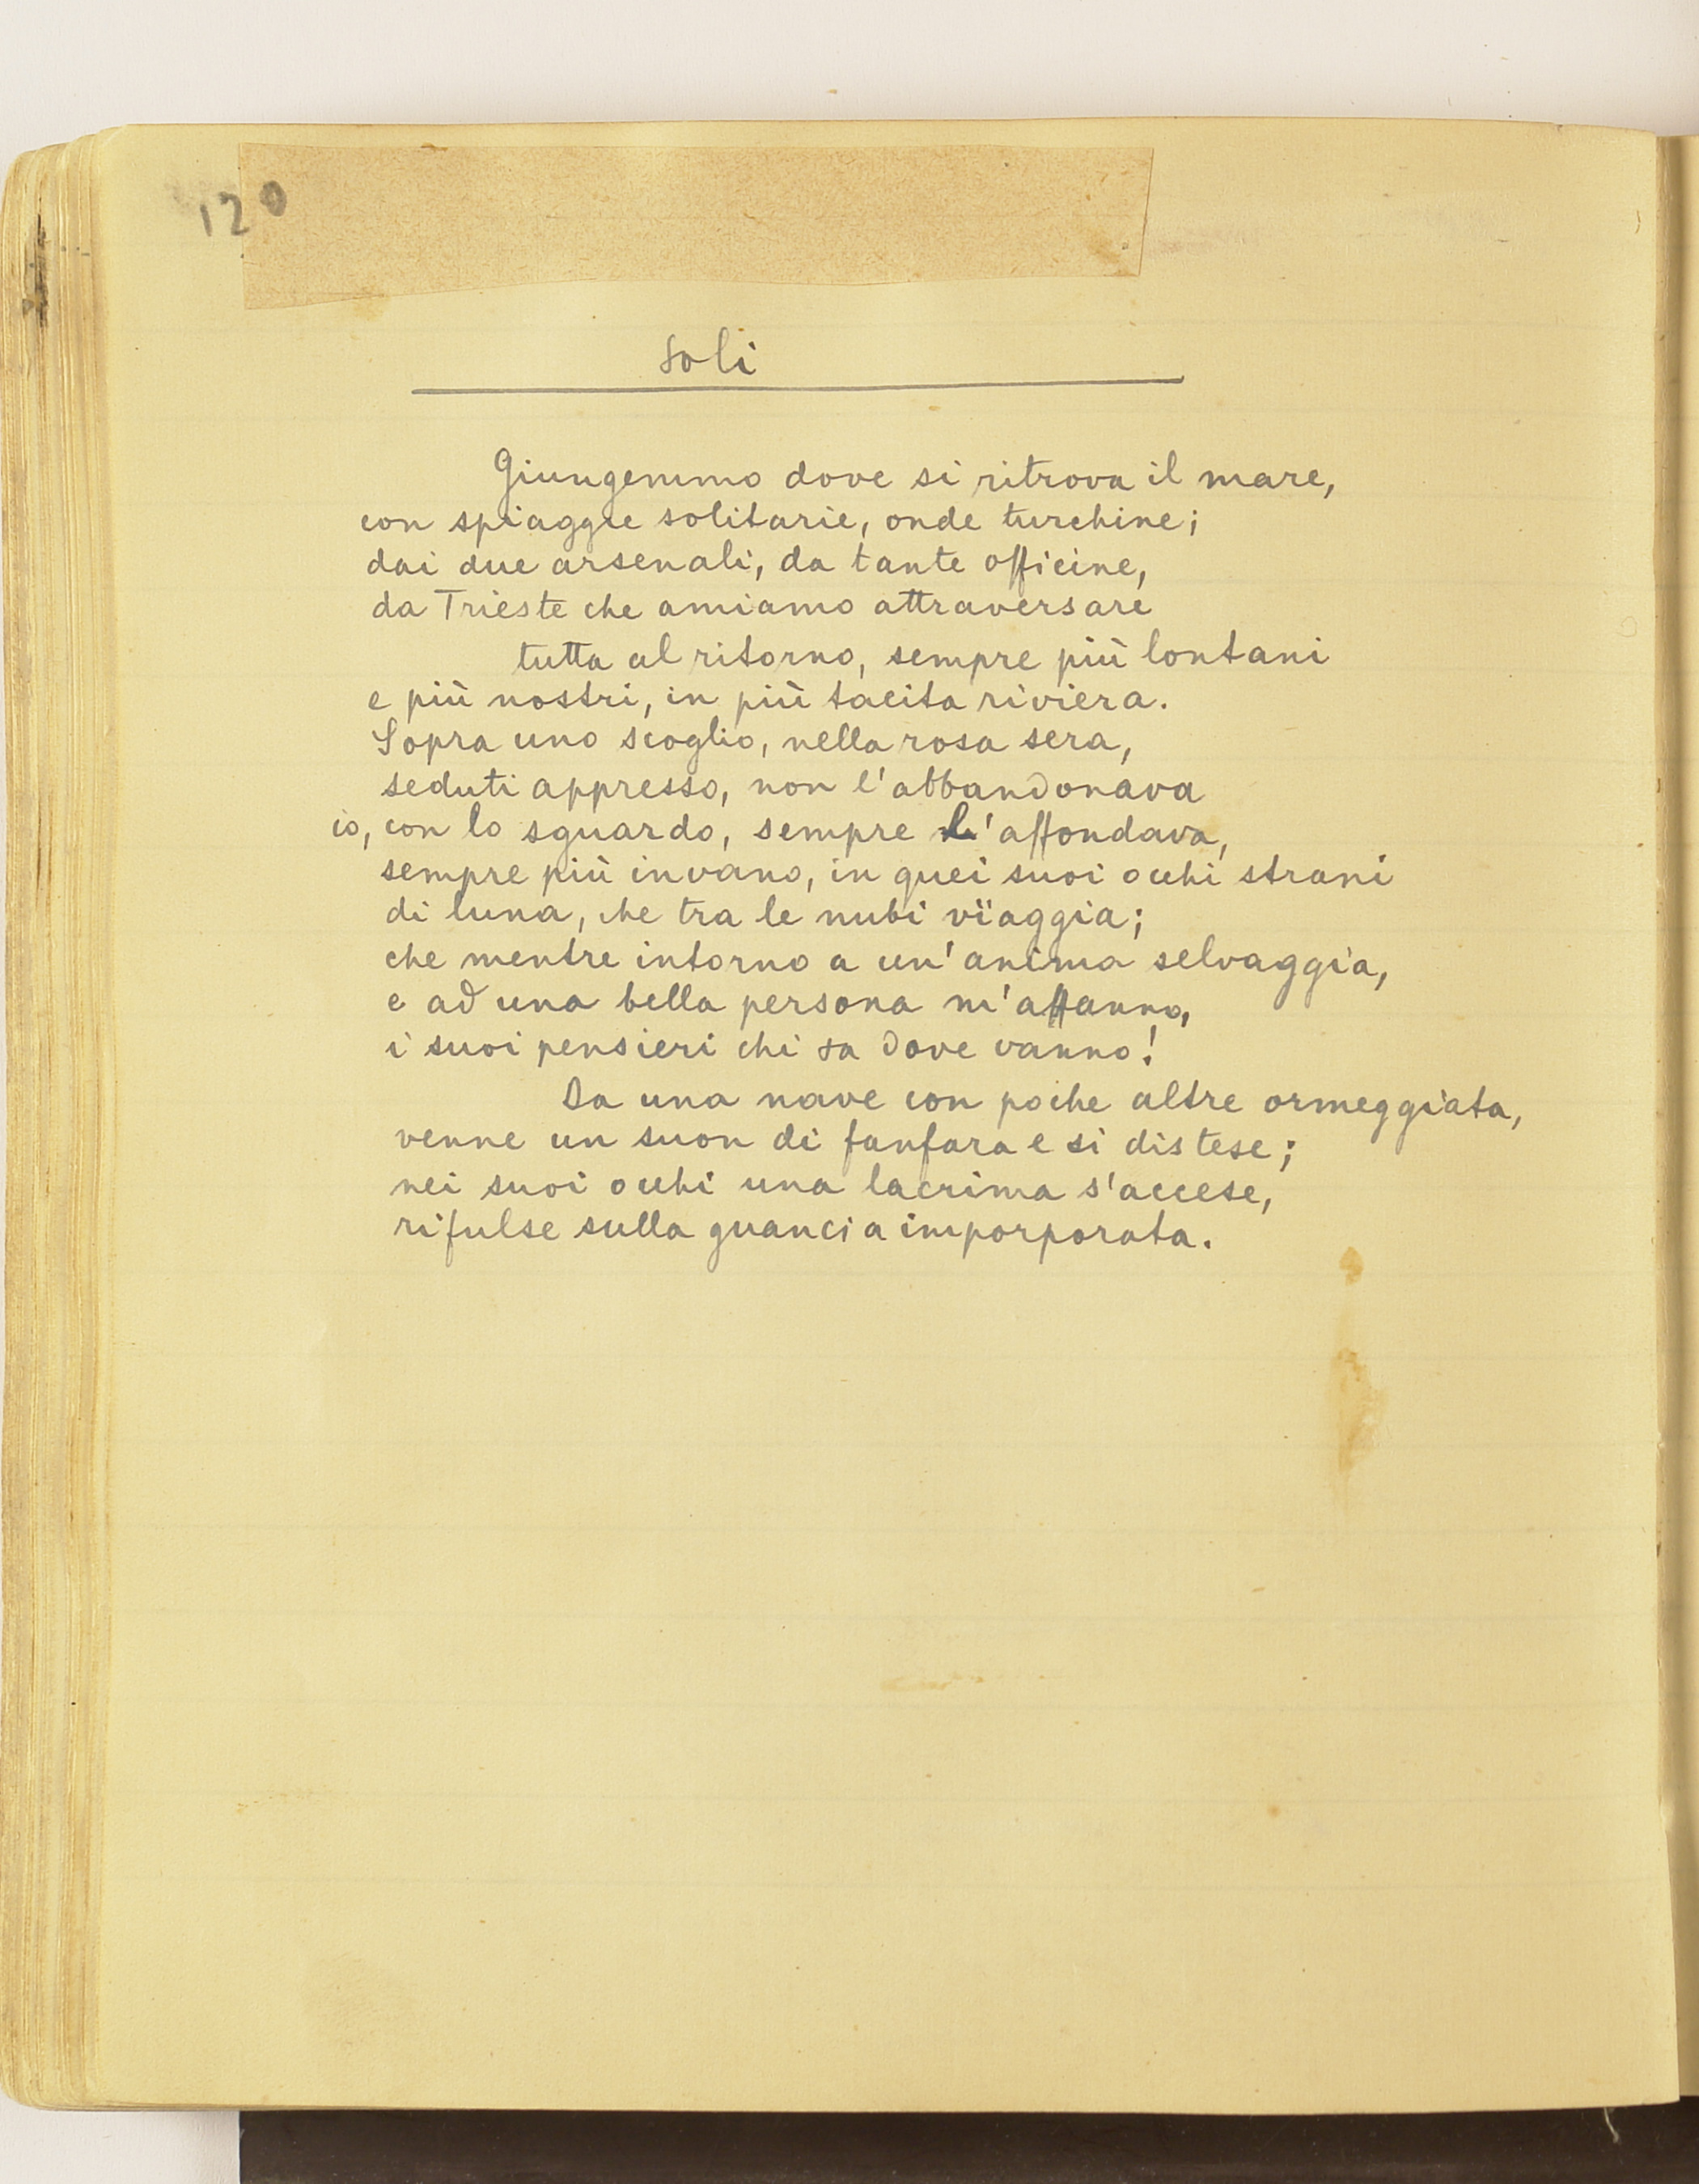 120
Soli
Giungemmo dove si ritrova il mare,
con spiagge solitarie, onde turchine;
dai due arsenali, da tante officine,
da Trieste che amiamo attraversare
tutta al ritorno, sempre più lontani
e più nostri, in più tacita riviera.
Sopra uno scoglio, nella rosa sera,
seduti appresso, non l'abbandonava
io, con lo sguardo, sempre l'affondava,
sempre più invano, in quei suoi occhi strani
di luna, che tra le nubi vïaggia;
che mentre intorno a un'anima selvaggia,
e ad una bella persona m'affanno,
i suoi pensieri chi sa dove vanno!
Da una nave con poche altre ormeggiata,
venne un suon di fanfara e si distese;
nei suoi occhi una lacrima s'accese,
rifulse sulla guancia imporporata.